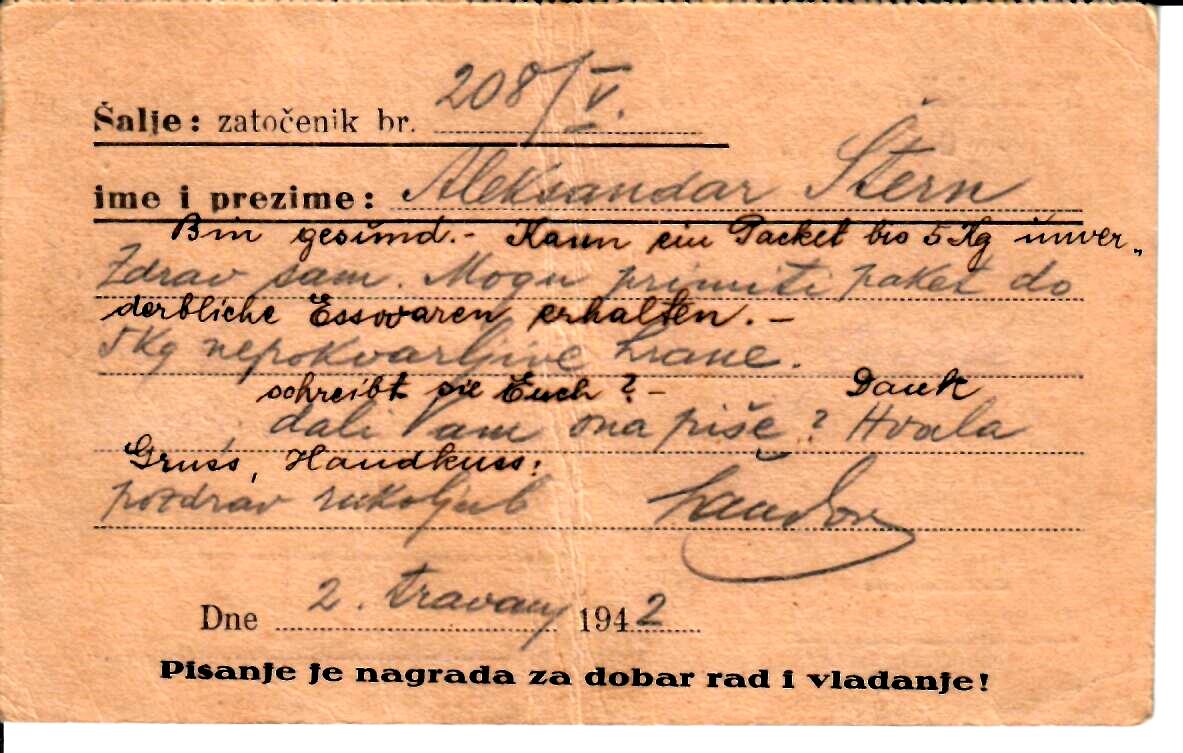 Šalje: zatočenik br. 208/V.
ime i prezime: Aleksandar Štern
Bin gesund.- Kann ein Packet bis 5 Kg unver„
Zdrav sam. Mogu primiti paket do
derbliche Esswaren erhalten.-
5 Kg nepokvarljive hrane.
schreibt sie Euch?- Dank
dali Vam ona piše? Hvala
Gruss, Handkuss:
pozdrav rukoljub Šandor
Dne 2. travanj 1942
Pisanje je nagrada za dobar rad i vladanje!